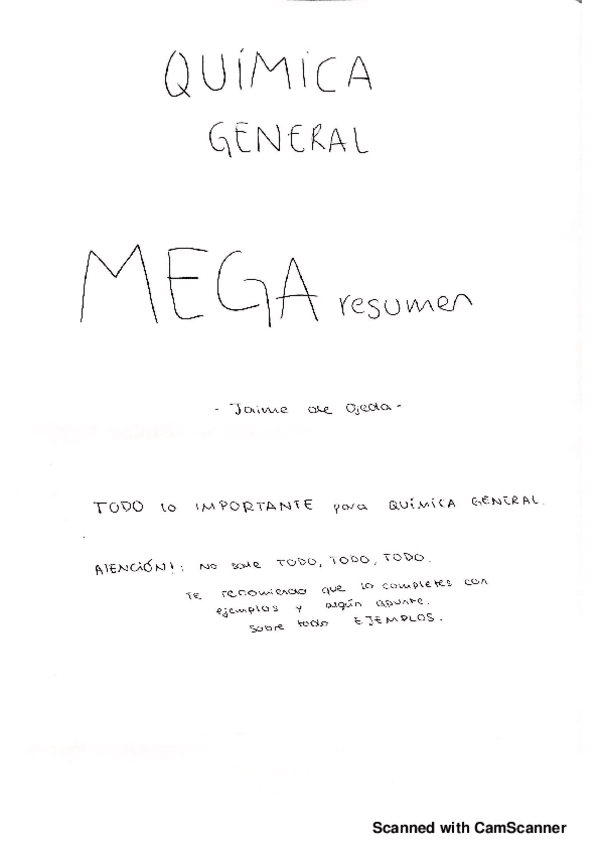 QUÍMICA
GENERAL
MEGA resumen
- Jaime de Ojeda -
TODO lo IMPORTANTE para QUÍMICA GENERAL.
ATENCIÓN!: No sale TODO, TODO, TODO.
TE recomiendo que lo completes con
ejemplos y algún apunte.
Sobre todo EJEMPLOS.
Scanned with CamScanner